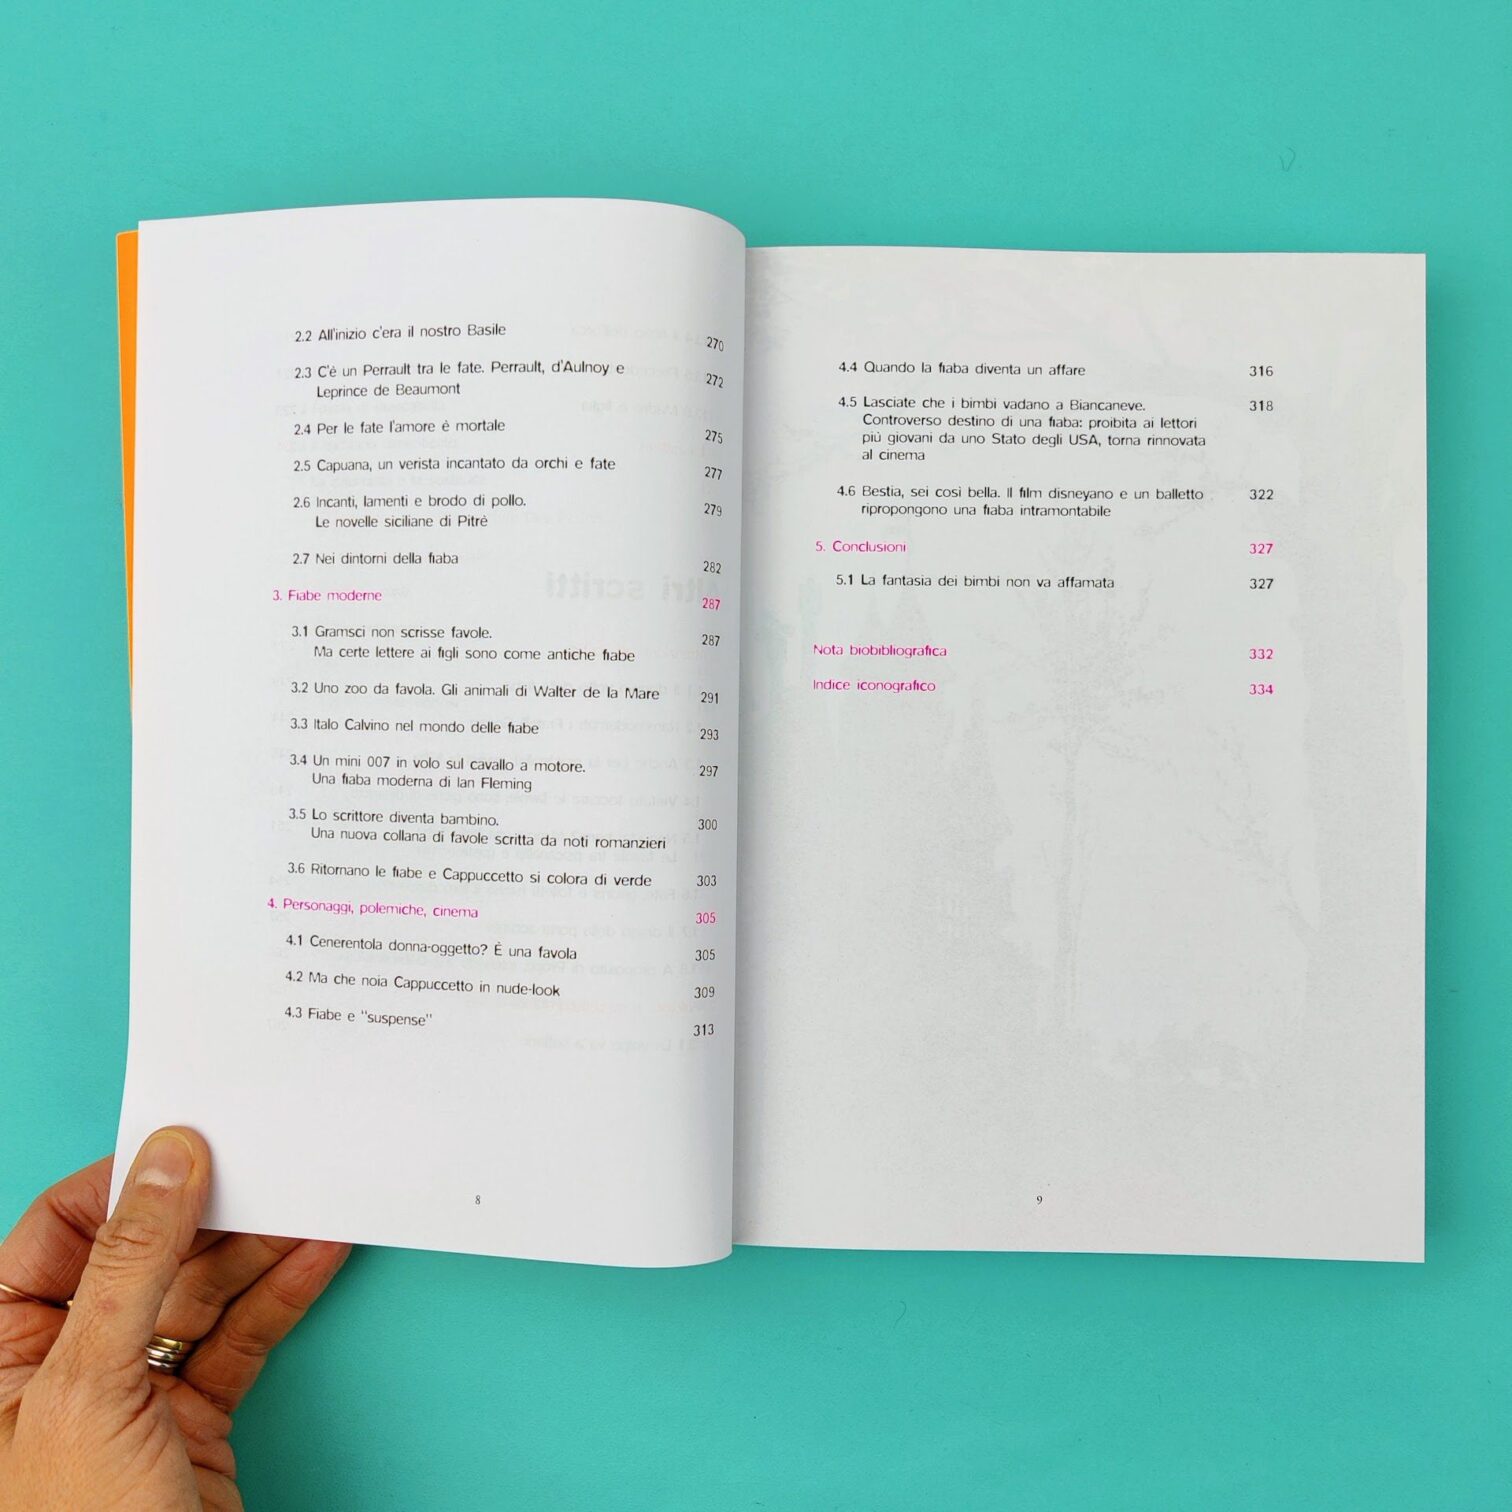 2.2 All'inizio c'era il nostro Basile 270
2.3 C'è un Perrault tra le fate. Perrault, d'Aulnoy e 272
Leprince de Beaumont
2.4 Per le fate l'amore è mortale 275
2.5 Capuana, un verista incantato da orchi e fate 277
2.6 Incanti, lamenti e brodo di pollo. 279
Le novelle siciliane di Pitrè
2.7 Nei dintorni della fiaba 282
3. Fiabe moderne 287
3.1 Gramsci non scrisse favole. 287
Ma certe lettere ai figli sono come antiche fiabe
3.2 Uno zoo da favola. Gli animali di Walter de la Mare 291
3.3 Italo Calvino nel mondo delle fiabe 293
3.4 Un mini 007 in volo sul cavallo a motore. 297
Una fiaba moderna di Ian Fleming
3.5 Lo scrittore diventa bambino. 300
Una nuova collana di favole scritta da noti romanzieri
3.6 Ritornano le fiabe e Cappuccetto si colora di verde 303
4. Personaggi, polemiche, cinema 305
4.1 Cenerentola donna-oggetto? È una favola 305
4.2 Ma che noia Cappuccetto in nude-look 309
4.3 Fiabe e "suspense" 313
8
4.4 Quando la fiaba diventa un affare 316
4.5 Lasciate che i bimbi vadano a Biancaneve. 318
Controverso destino di una fiaba: proibita ai lettori
più giovani da uno Stato degli USA, torna rinnovata
al cinema
4.6 Bestia, sei così bella. Il film disneyano e un balletto 322
ripropongono una fiaba intramontabile
5. Conclusioni 327
5.1 La fantasia dei bimbi non va affamata 327
Nota biobibliografica 332
Indice iconografico 334
9